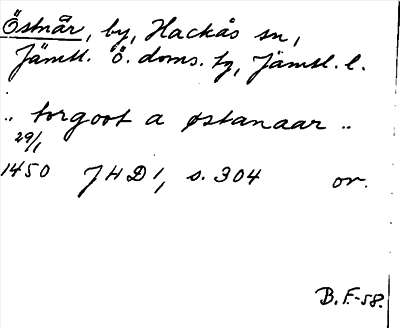 Östnår, by, Hackås sn,
Jämtl. ö. doms. tg, Jämtl. l.
.. torgoot a østanaar ..
29/1
1450 JHD 1, s. 304 or.
B.F.-58.